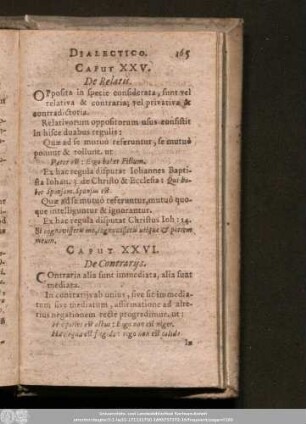 DIALECTICO. 165
CAPUT XXV.
De Relatis.
OPposita in specie considerata, sunt vel
relativa & contraria; vel privativa &
contradictoria.
Relativorum oppositorum usus consistit
In hisce duabus regulis:
Quæ ad se mutuò referuntur, se mutuò
ponunt & tollunt. ut
Pater est: Ergo habet Filium.
Ex hac regula disputat Iohannes Bapti-
sta Iohan. 3. de Christo & Ecclesia: Qui ha-
bet sponsam, sponsus est.
Quæ ad se mutuò referuntur, mutuò quo-
que intelliguntur & ignorantur.
Ex hac regula disputat Christus Ioh: 14.
Si cognovissetis me, cognovissetis utique & patrem
meum.
CAPUT XXVI.
De Contrarijs.
COntraria alia sunt immediata, alia sunt
mediata.
In contrarijs ab unius, sive sit immedia-
tum sive mediatum, affirmatione ad alte-
rius negationem rectè progredimur, ut:
est albus: Ergo non est niger.
est frigida: ergo non est calida
In